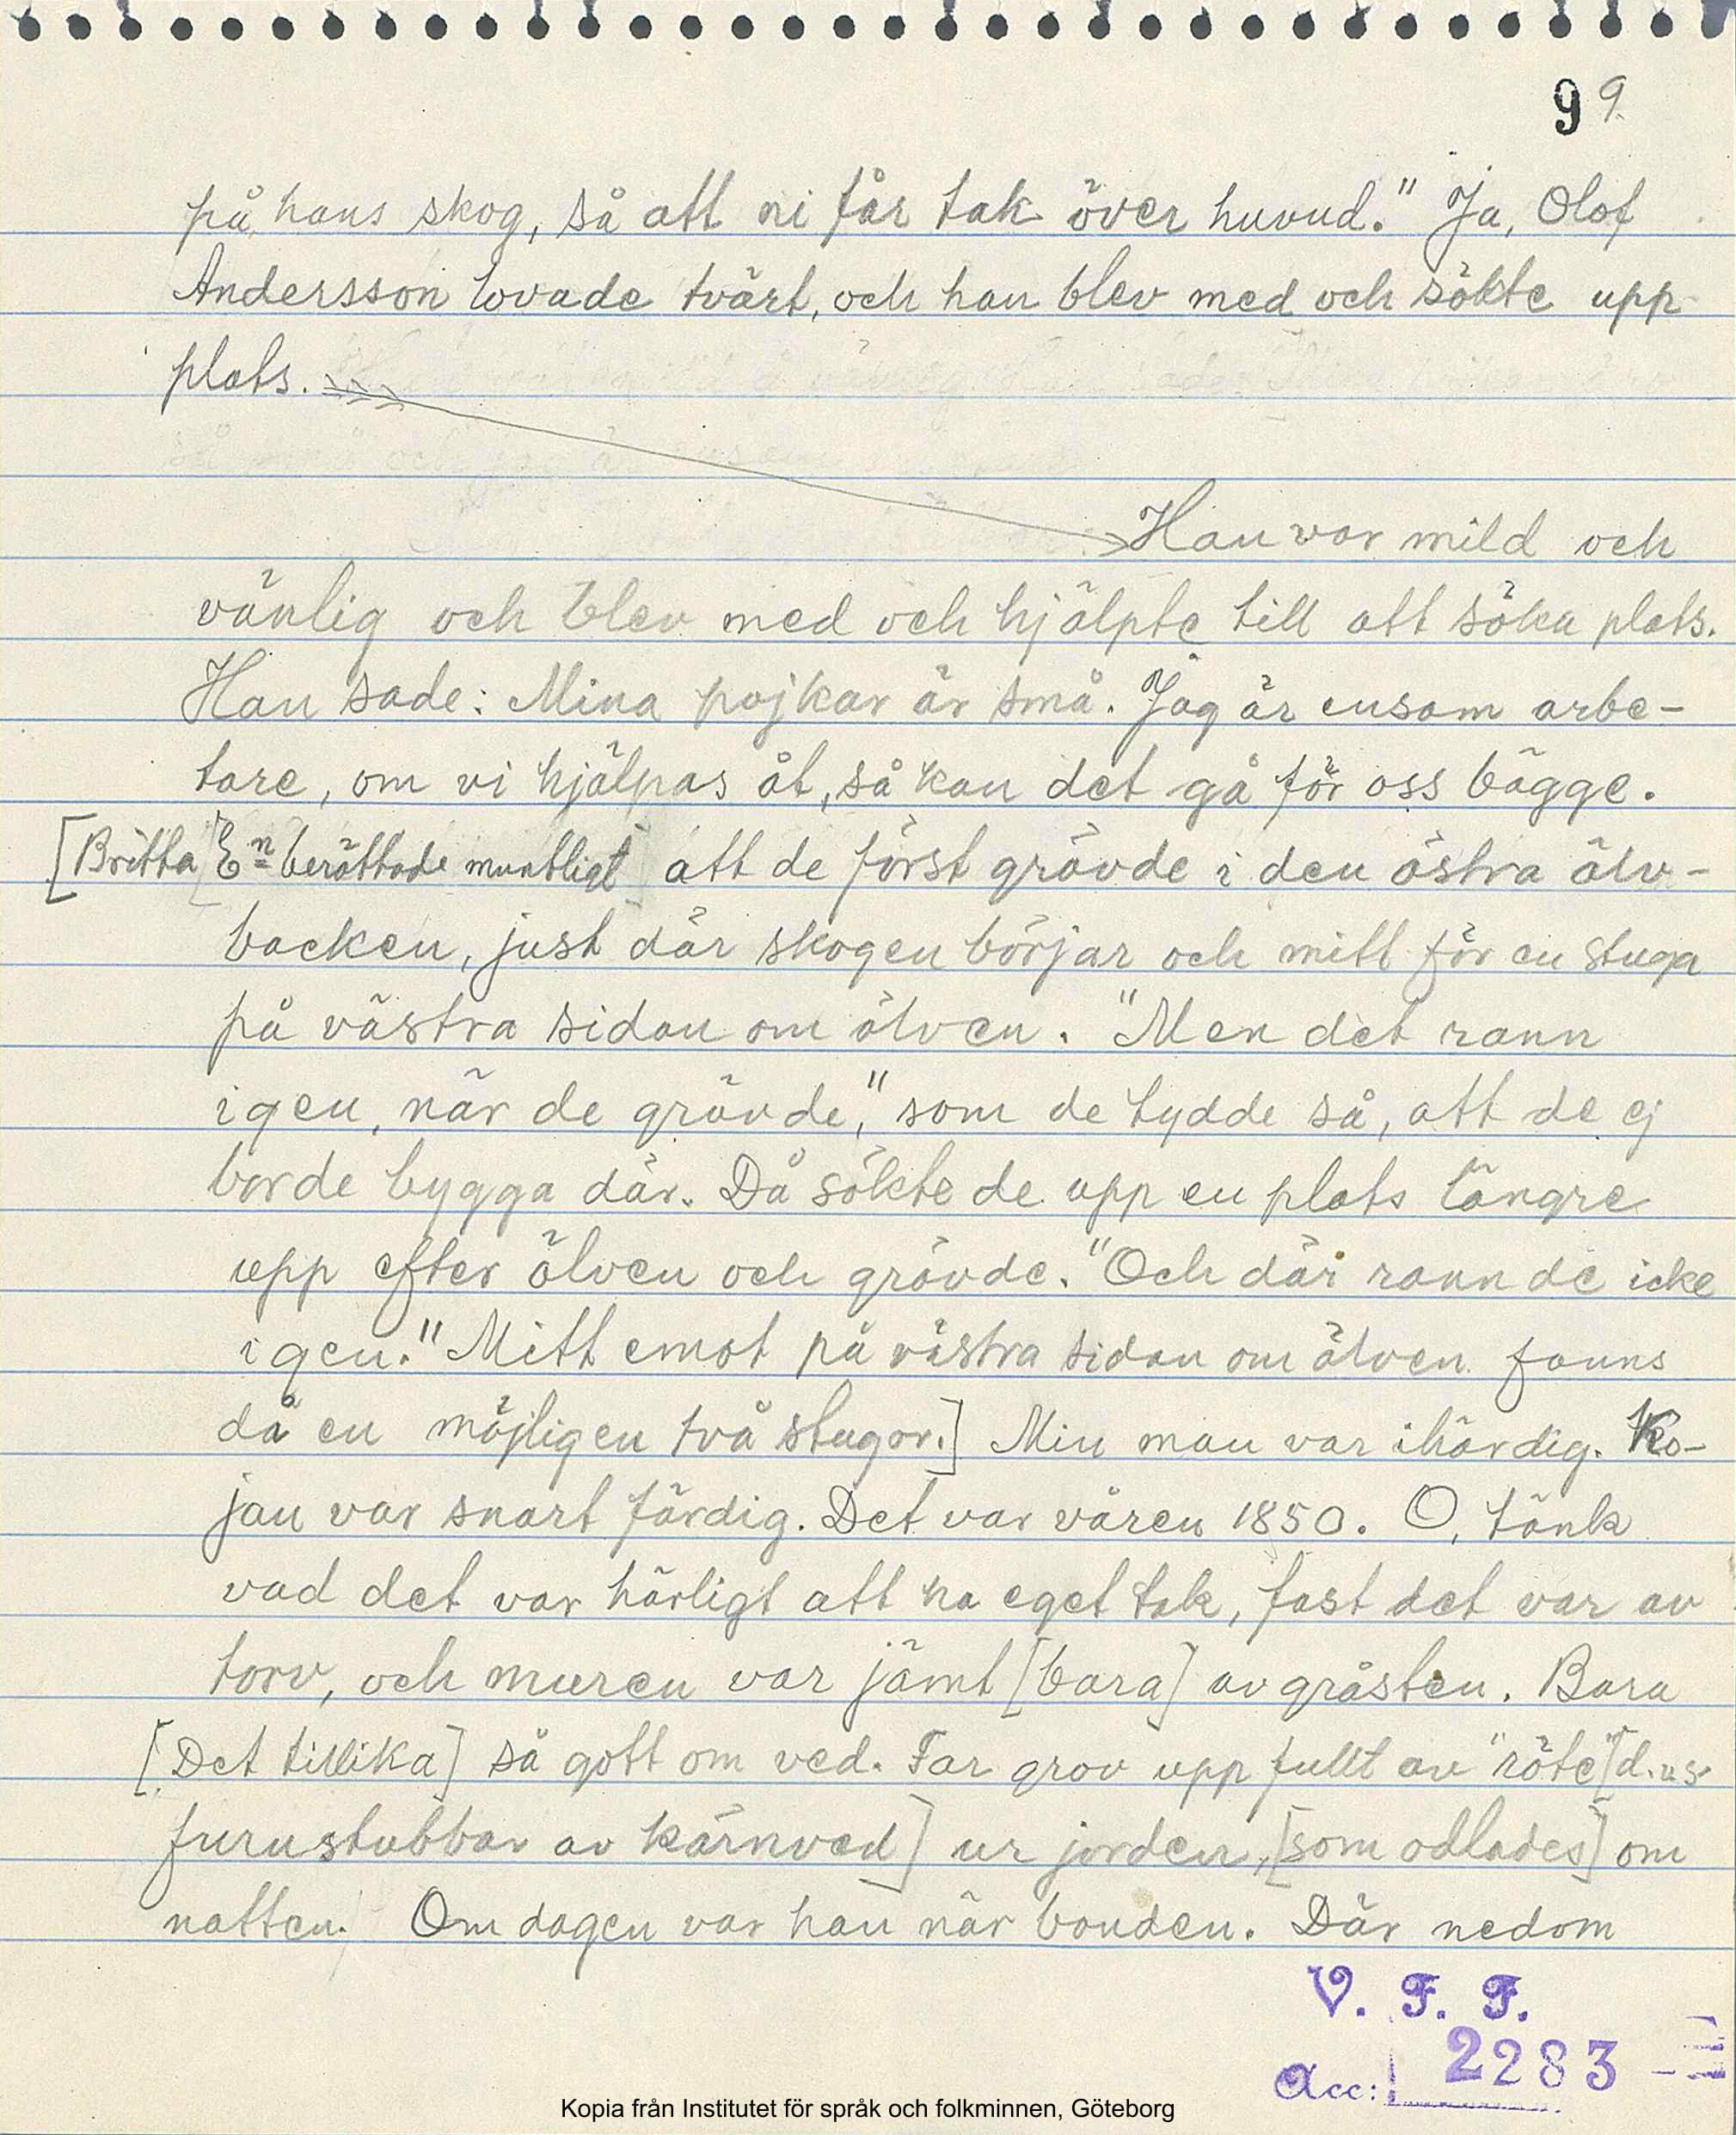 9 9.
på hans skog, så att ni får tak över huvud." Ja, Olof
Andersson lovade tvärt, och han blev med och sökte upp
plats.
Han var mild och
vänlig och blev med och hjälpte till att söka plats.
Han sade: Mina pojkar är små. Jag är ensam arbe-
tare, om vi hjälpas åt, så kan det gå för oss bägge.
[Britta En berättade muntligt att de först grävde i den östra älv-
backen, just där skogen börjar och mitt för en stuga
på västra sidan om älven. "Men det rann
igen, när de grävde," som de tydde så, att de ej
borde bygga där. Då sökte de upp en plats längre
upp efter älven och grävde. "Och där rann de icke
igen." Mitt emot på västra sidan om älven fanns
då en möjligen två stugor.] Min man var ihärdig. Ko-
jan var snart färdig. Det var våren 1850. O, tänk
vad det var härligt att ha eget tak, fast det var av
torv, och muren var jämt [bara] av gråsten. Bara
[Det tillika] så gott om ved. Far grov upp fullt av "röte" [d.v.s.
furustubbar av kärnved] ur jorden, [som odlades] om
natten. Om dagen var han när bonden. Där nedom
V. F. F.
Acc: 2283
Kopia från Institutet för språk och folkminnen, Göteborg